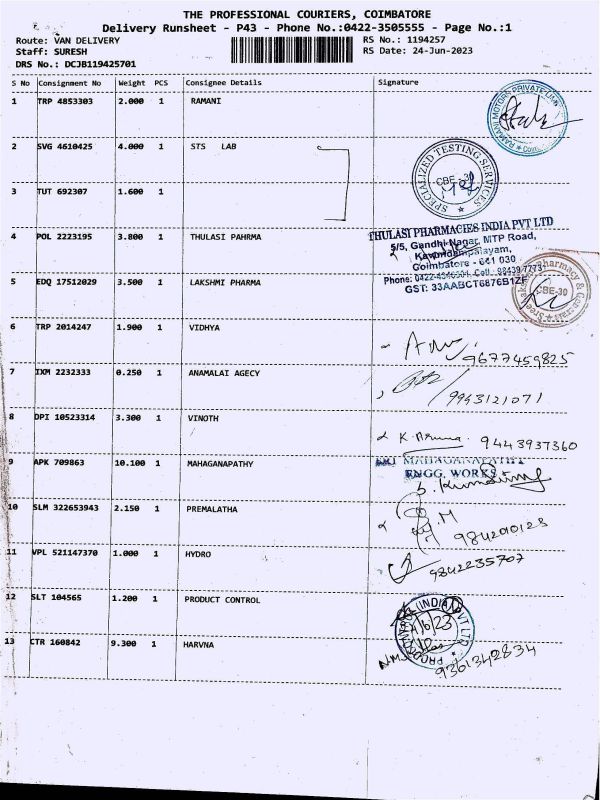 THE PROFESSIONAL COURIERS, COIMBATORE
Delivery Runsheet - P43 - Phone No.:0422-3505555 - Page No.:1
Route: VAN DELIVERY RS No.: 1194257
Staff: SURESH RS Date: 24-Jun-2023
DRS No.: DCJB119425701
S No Consignment No Weight PCS Consignee Details Signature
1 TRP 4853303 2.000 1 RAMANI
RAMANI MOTORS PRIVATE
2 SVG 4610425 4.000 1 STS LAB
SPECIALIZED TESTING SERVICES
CBE - 30
3 TUT 692307 1.600 1
THULASI PHARMACIES INDIA PVT LTD
4 POL 2223195 3.800 1 THULASI PAHRMA
5/5, Gandhi Nagar, MTP Road,
Kavundampalayam,
Coimbatore - 641 030
GST: 33AABCT6876B1ZF
5 EDQ 17512029 3.500 1 LAKSHMI PHARMA
Pharmacy & General
CBE-30
6 TRP 2014247 1.900 1 VIDHYA
9677459825
7 IXM 2232333 0.250 1 ANAMALAI AGECY
9943121071
8 DPI 10523314 3.300 1 VINOTH
K. Aruna 9443937360
9 APK 709863 10.100 1 MAHAGANAPATHY
MAHAGANAPATHY
ENGG. WORKS
10 SLM 322653943 2.150 1 PREMALATHA
M
11 VPL 521147370 1.000 1 HYDRO
9842235707
12 SLT 104565 1.200 1 PRODUCT CONTROL
(INDIA) PVT LTD
13 CTR 160842 9.300 1 HARVNA
9361342834